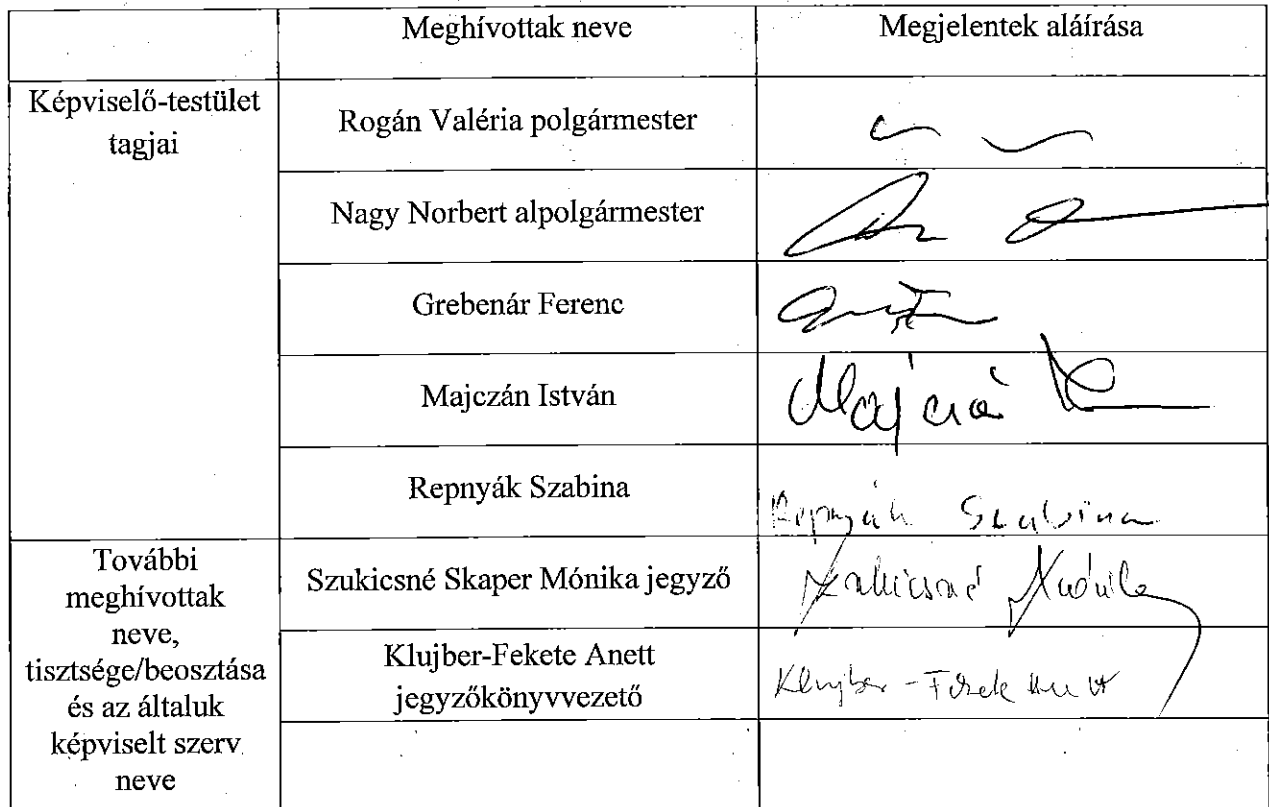 Meghívottak neve
Megjelentek aláírása
Képviselő-testület
tagjai
Rogán Valéria polgármester
Nagy Norbert alpolgármester
Grebenár Ferenc
Majczán István
Repnyák Szabina
Repnyák Szabina
További
meghívottak
neve,
tisztsége/beosztása
és az általuk
képviselt szerv
neve
Szukicsné Skaper Mónika jegyző
Szukicsné Mónika
Klujber-Fekete Anett
jegyzőkönyvvezető
Klujber-Fekete Anett